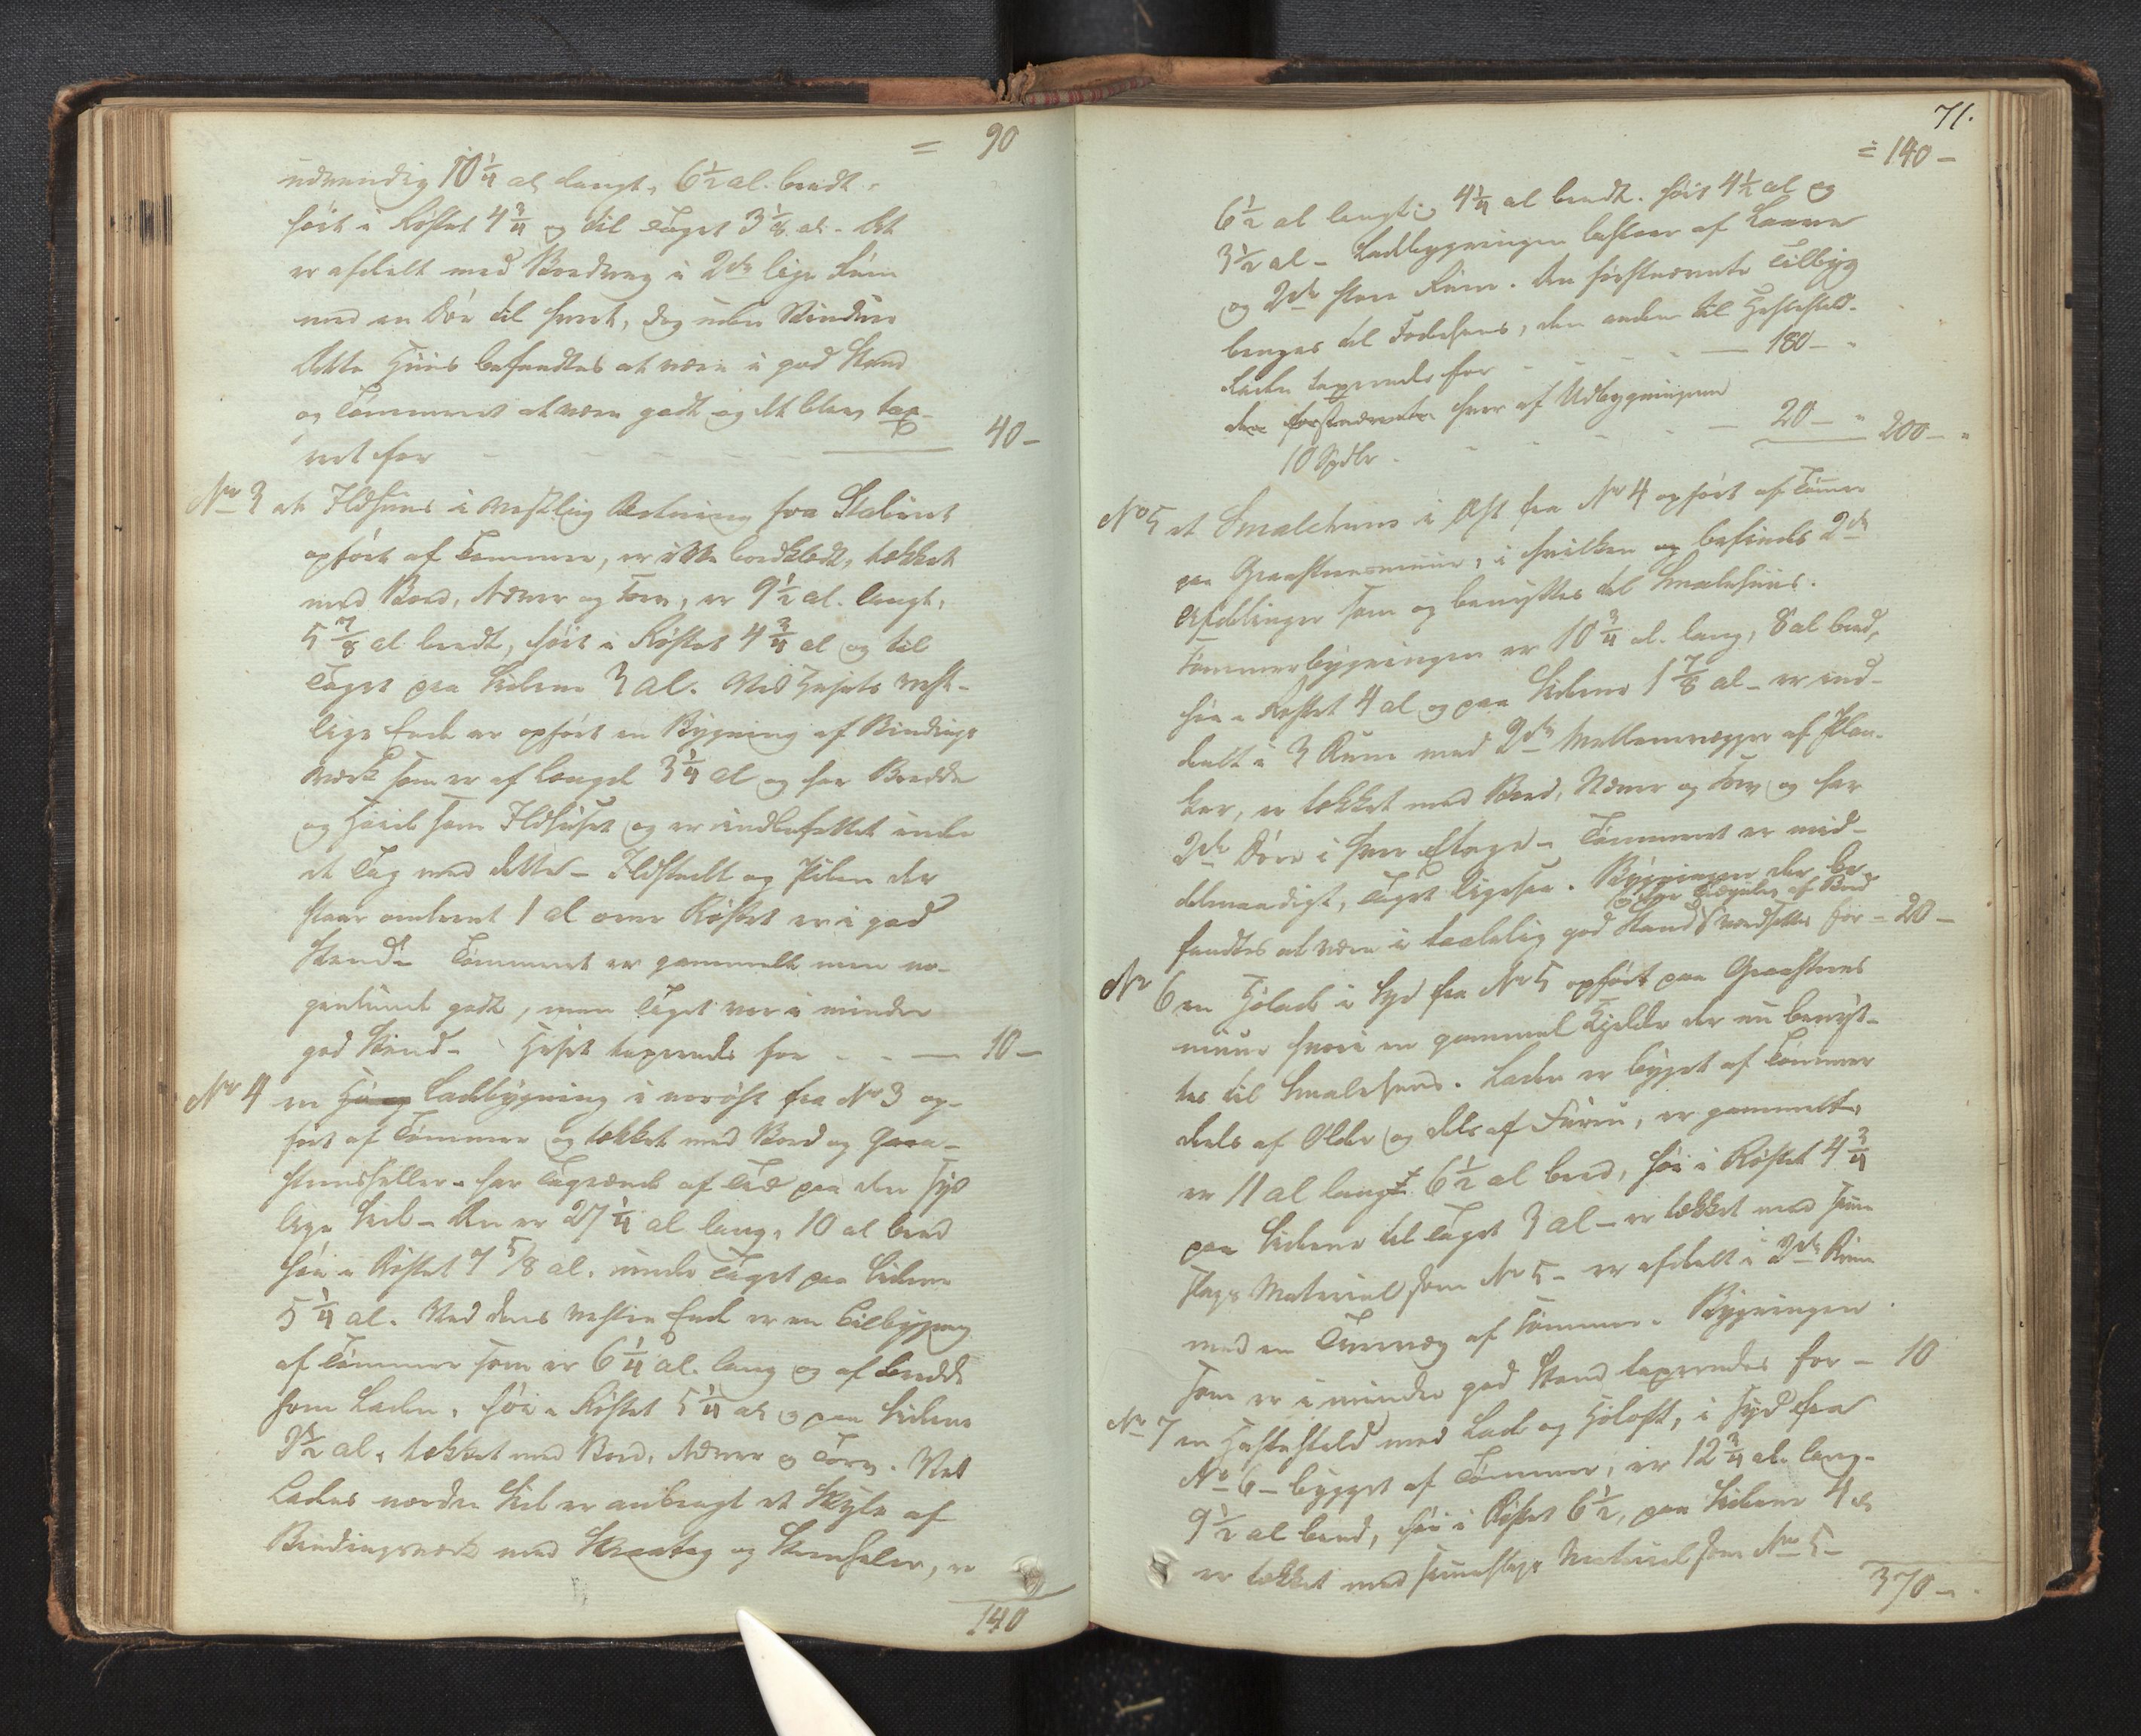 = 90
udvendig 10 1/4 al langt, 6 1/2 al. bredt,
høit i Røstet 4 3/4 og til Taget 3 1/8 al. Det
er afdelt med Bordvæg i 2de lige Rum
med en Dør til hvert, dog uden Vinduer
Dette Huus befandtes at være i god Stand
og Tømmeret at være godt og det blev tax-
eret for - - - - 40 -
No 3 et Ildhuus i vestlig Retning fra Stabburet
opført af Tømmer, er ikke bordklædt, tækket
med Bord, Næver og Torv, er 9 1/2 al. langt,
5 7/8 al bredt, høit i Røstet 4 3/4 al og til
Taget paa Siderne 3 al. Ved Husets vest-
lige Ende er opført en Bygning af Bindings
værk som er af Længde 3 1/4 al og har Bredde
og Høide som Ildhuset og er indbefattet under
et Tag med dette - Ildstedt og Piben der
staar omtrent 1 al over Røstet er i god
Stand - Tømmeret er gammelt men no-
genlunde godt, men Taget var i mindre
god Stand - Huset taxeredes for - - - 10 -
No 4 en Ladebygning i nordøst fra No 3 op-
ført af Tømmer og tækket med Bord og Graa-
steensheller - har Tagrænde af Træ paa den syd
lige Side - Den er 27 1/4 al lang, 10 al bred
høi i Røstet 7 5/8 al. under Taget paa Siderne
5 1/4 al. Ved dens vestre Ende er en Tilbygning
af Tømmer som er 6 1/4 al. lang og af Bredde
som Laden, høi i Røstet 5 1/4 al og paa Siderne
2 1/2 al, tækket med Bord, Næver og Torv. Ved
Ladens nordre Side er anbragt et Skyle af
Bindingsværk med Skraatag og Steenheler, er
140
71.
= 140 -
6 1/2 al langt og 4 1/4 al bredt. høit 4 1/2 al og
3 1/2 al - Ladebygningen bestaar af Laave
og 2de store Rum. Den førstnævnte Tilbyg
bruges til Foderhuus, den anden til Hestestald.
Laden taxeredes for - - - 180 - "
den førstnævnte hver af Udbygningerne
10 Spdlr - - - - 20 - " 200 - "
No 5 et Smalehuus i Øst fra No 4 opført af Tømmer
paa Graasteensmuur, i hvilken og befindes 2de
Afdelinger som og benyttes til Smalehuus.
Tømmerbygningen er 10 3/4 al. lang, 8 al bred,
høi i Røstet 4 al og paa Siderne 1 7/8 al - er ind-
deelt i 3 Rum med 2de Mellemvægge af Plan-
ker, er tækket med Bord, Næver og Torv og har
2de Døre i hver Etage - Tømmeret er mid-
delmaadigt, Taget ligesaa. Bygningen der be-
fandtes at være i taalelig god Stand værdsattes for - 20 -
No 6 en Høelade i Syd fra No 5 opført paa Graasteens
muur hvori en gammel Kjelder der nu benyt-
tes til Smalehuus. Laden er bygget af Tømmer
deels af Older og dels af Furu, er gammelt,
er 11 al lang 6 1/2 al bred, høi i Røstet 4 3/4
paa Siderne til Taget 3 al - er tækket med samme
Slags Material som No 5 - er afdeelt i 2de Rum
med en Tverrvæg af Tømmer. Bygningen
som er i mindre god Stand taxeredes for - 10
No 7 en Hestestald med Lade og Høeloft, i Syd fra
No 6 - bygget af Tømmer, er 12 3/4 al. lang -
9 1/2 al bred, høi i Røstet 6 1/2, paa Siderne 4 al
er tækket med samme Slags Material som No 5 -
370 -